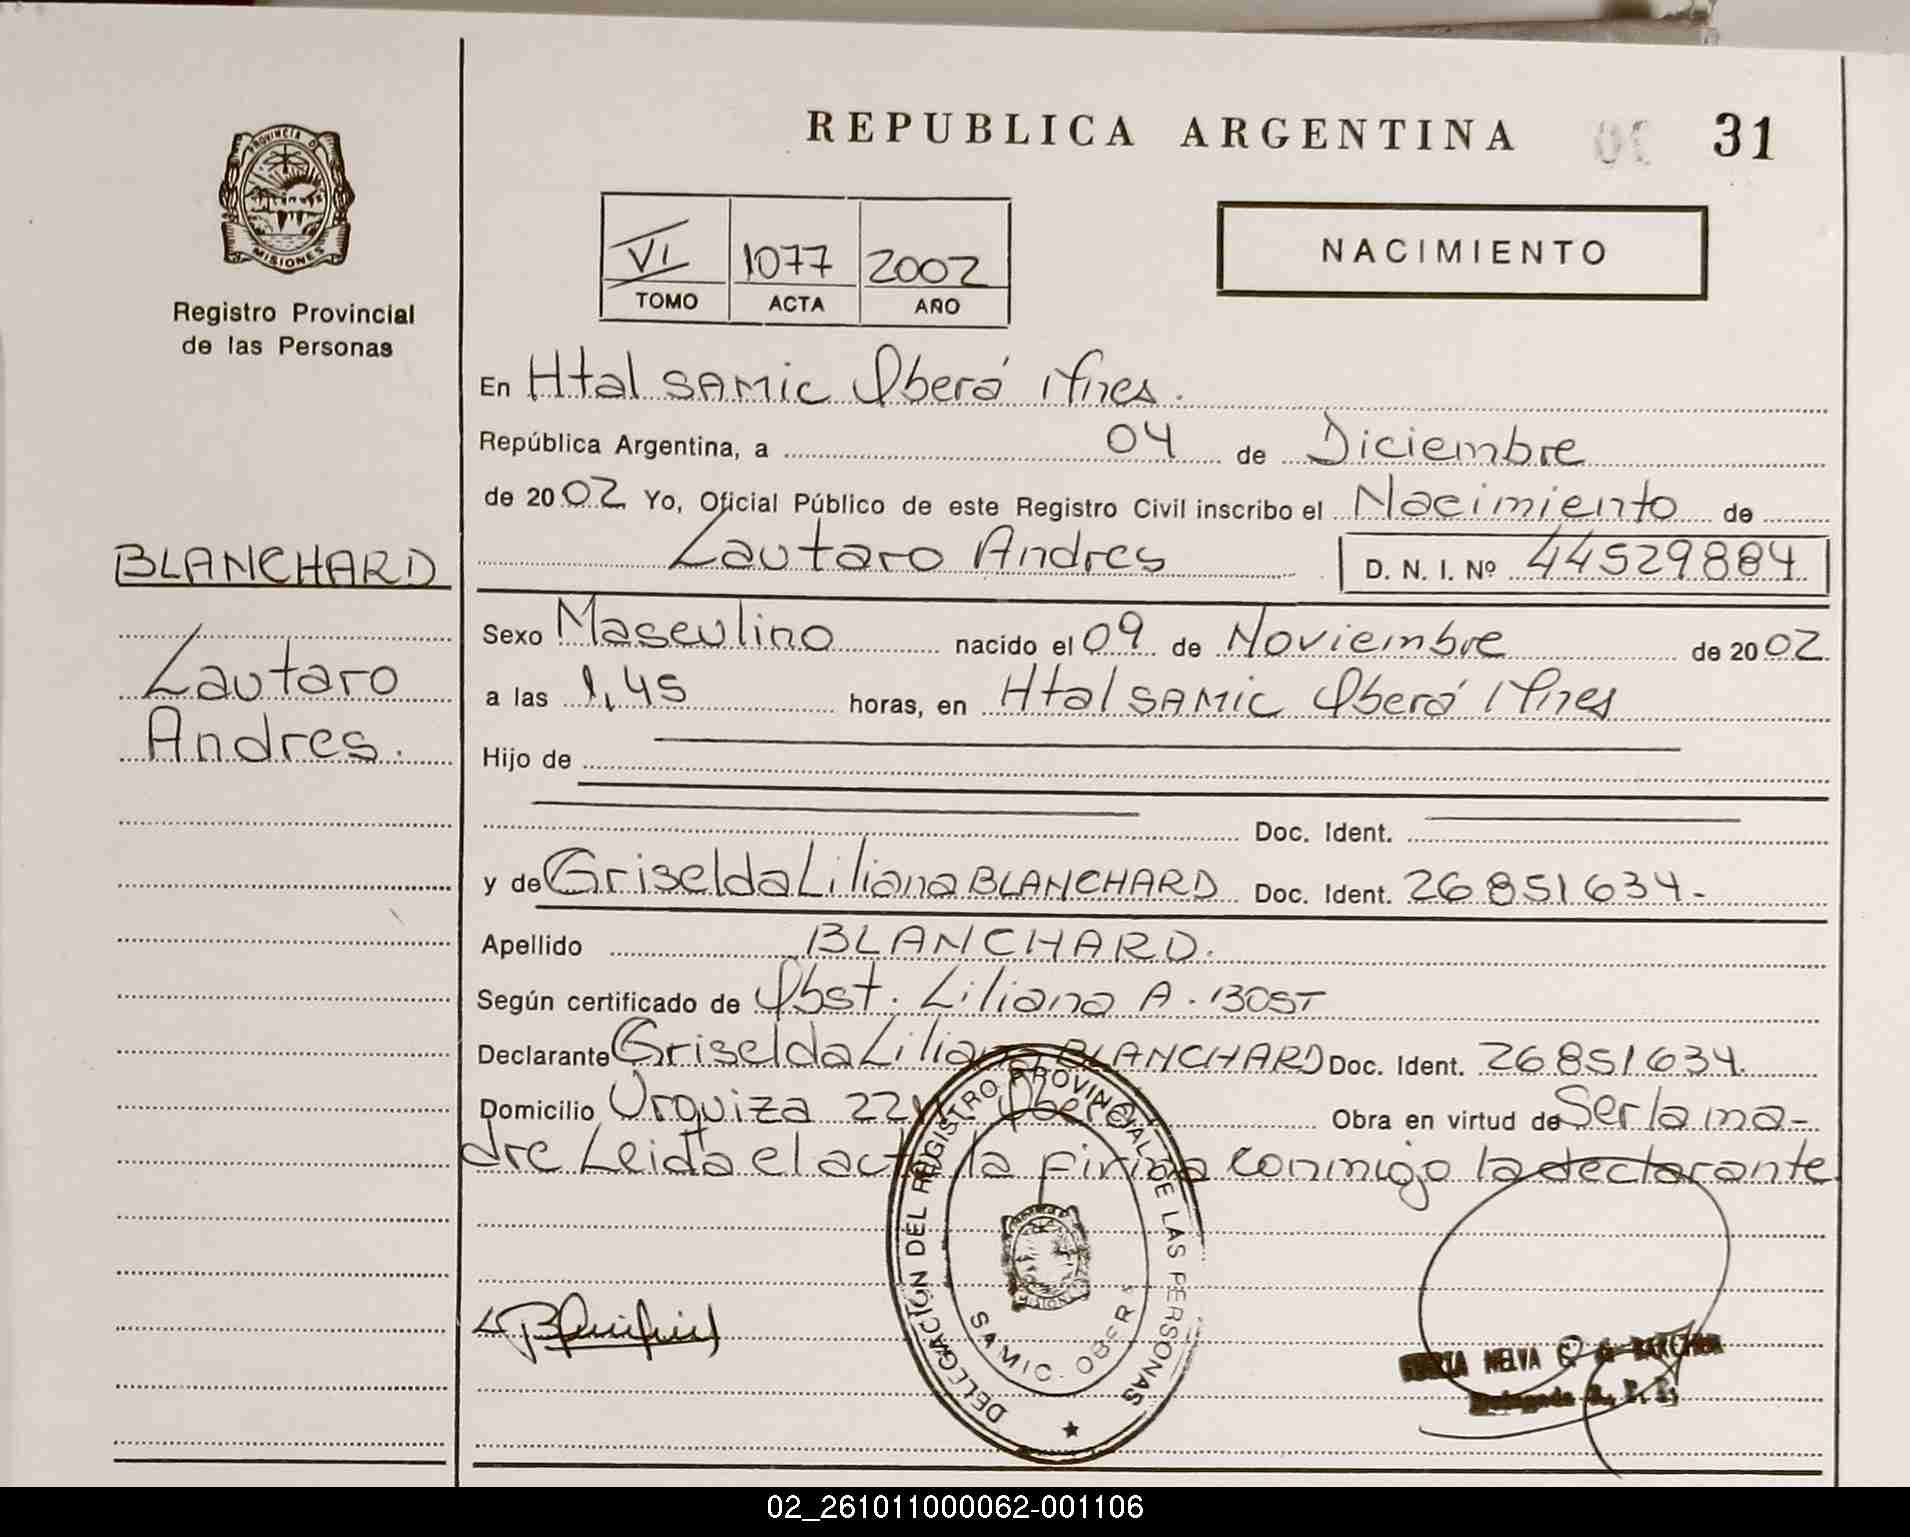 REPUBLICA ARGENTINA 31
PROVINCIA D MISIONES
Registro Provincial
de las Personas
VI 1077 2002
TOMO ACTA AÑO
NACIMIENTO
En Htal SAMIC Oberá Mnes.
República Argentina, a 04 de Diciembre
de 2002 Yo, Oficial Público de este Registro Civil inscribo el Nacimiento de
Lautaro Andres D. N. I. Nº 44529884
BLANCHARD
Lautaro
Andres.
Sexo Masculino nacido el 09 de Noviembre de 2002
a las 1,45 horas, en Htal SAMIC Oberá Mnes
Hijo de
Doc. Ident.
y de Griselda Liliana BLANCHARD Doc. Ident. 26851634-
Apellido BLANCHARD.
Según certificado de Obst. Liliana A. BOST
Declarante Griselda Liliana BLANCHARD Doc. Ident. 26851634.
Domicilio Urquiza Obera Obra en virtud de Ser la ma-
dre Leida el acta la firma conmigo la declarante
DELEGACIÓN DEL REGISTRO PROVINCIAL DE LAS PERSONAS
SAMIC. OBER
MELVA
02_261011000062-001106